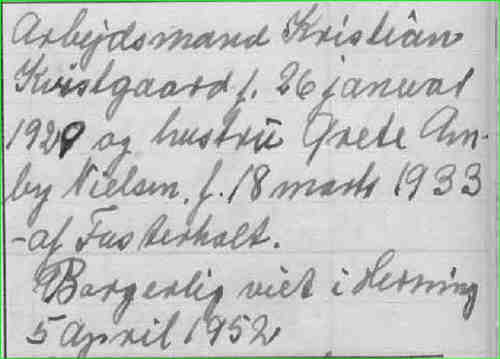 Arbejdsmand Kristian
Kvistgaard f. 26 januar
1929 og hustru Grete Am-
by Nielsen, f. 18 marts 1933
-af Fasterholt.
Borgerlig viet i Herning
5 april 1952